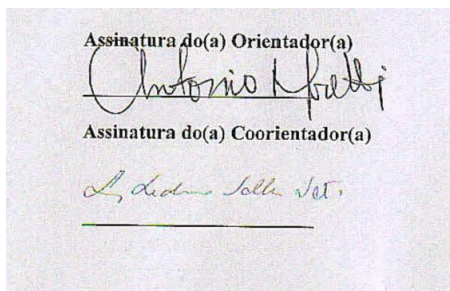 Assinatura do(a) Orientador(a)
Antonio Moretti
Assinatura do(a) Coorientador(a)